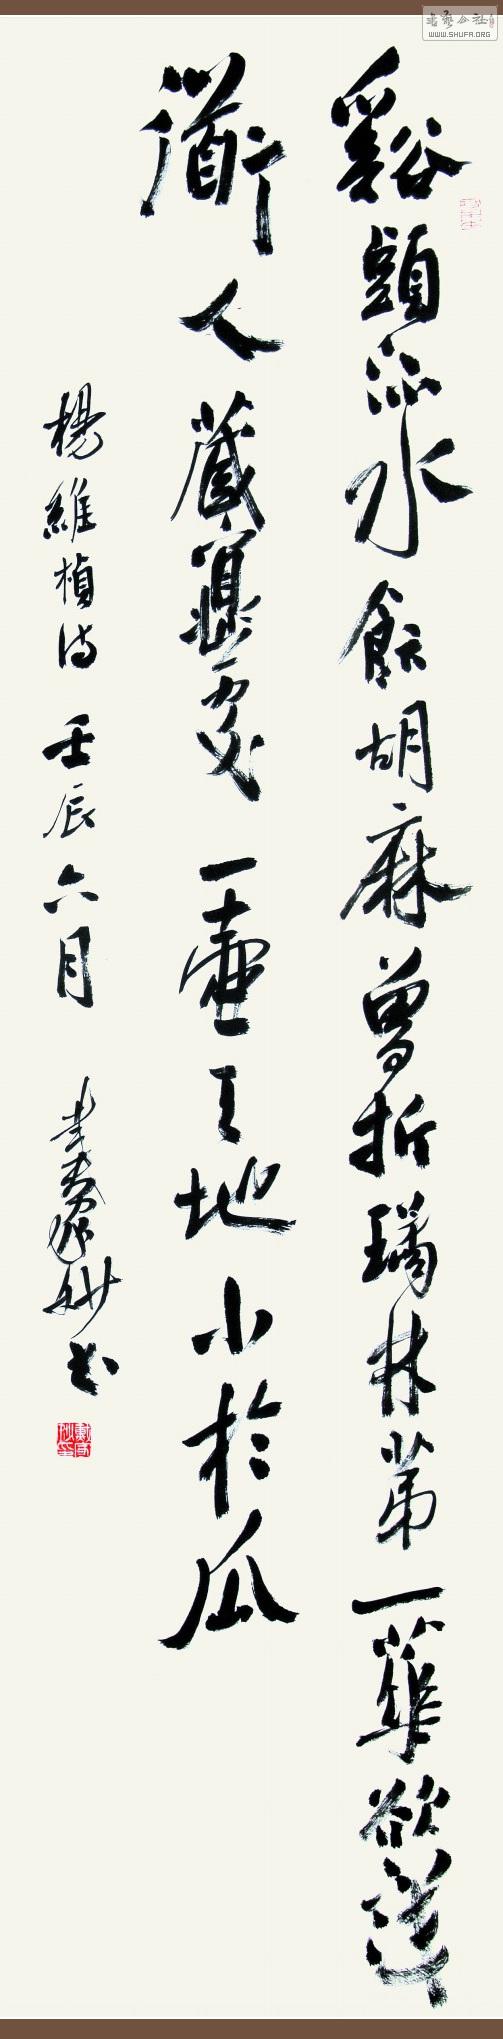 書藝公社
WWW.SHUFA.ORG
谿頭流水飯胡麻曾折璚林第一華欲識
衜人藏處一壺天地小於瓜
楊維楨詩 壬辰六月 妙書